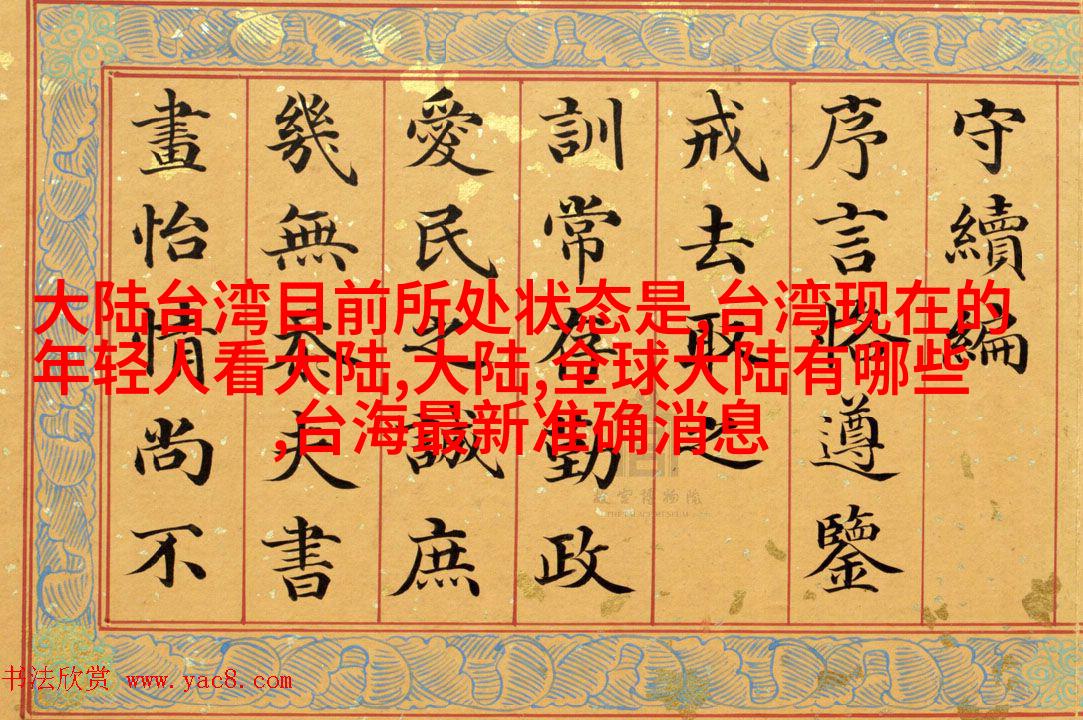 守續編
序言恪遵鑒
戒去取之
訓常勤政
愛民之誠庶
幾無忝夫書
畫怡情尚不
大陆台湾目前所处状态是,台湾现在的
年轻人看大陆,大陆,全球大陆有哪些
,台海最新准确消息
故宫博物院
THE PALACE MUSEUM
书法欣赏 www.yac8.com